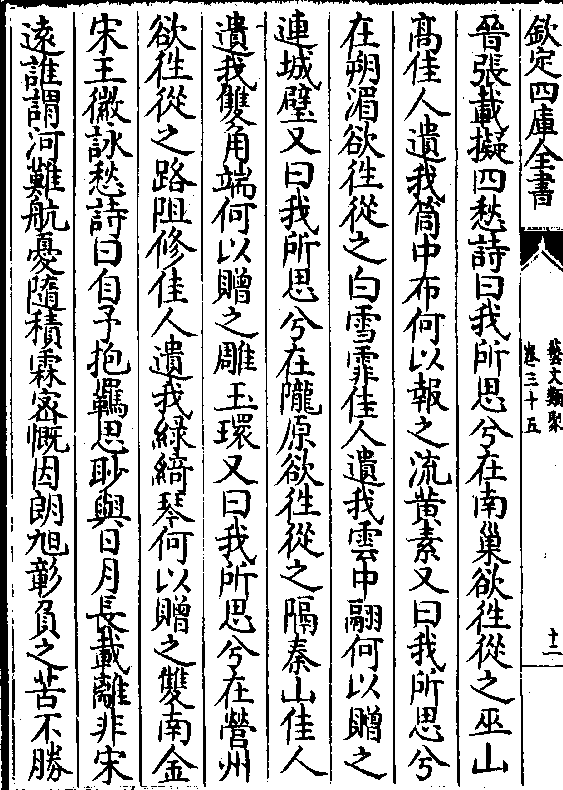 欽定四庫全書
藝文類聚
卷三十五
十二
晉張載擬四愁詩曰我所思兮在南巢欲徃從之巫山
髙佳人遺我筒中布何以報之流黄素又曰我所思兮
在朔湄欲徃從之白雪霏佳人遺我雲中翮何以贈之
連城璧又曰我所思兮在隴原欲徃從之隔秦山佳人
遺我雙角端何以贈之雕玉環又曰我所思兮在營州
欲徃從之路阻修佳人遺我緑綺琴何以贈之雙南金
宋王微詠愁詩曰自予抱羈思眇與日月長載離非宋
遠誰謂河難航憂隨積霖密慨因朗旭彰負之苦不勝